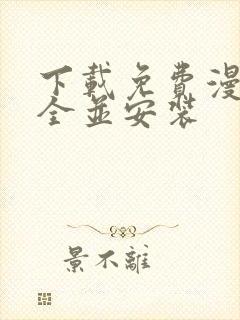 下載免費漫
全並安裝
景不離